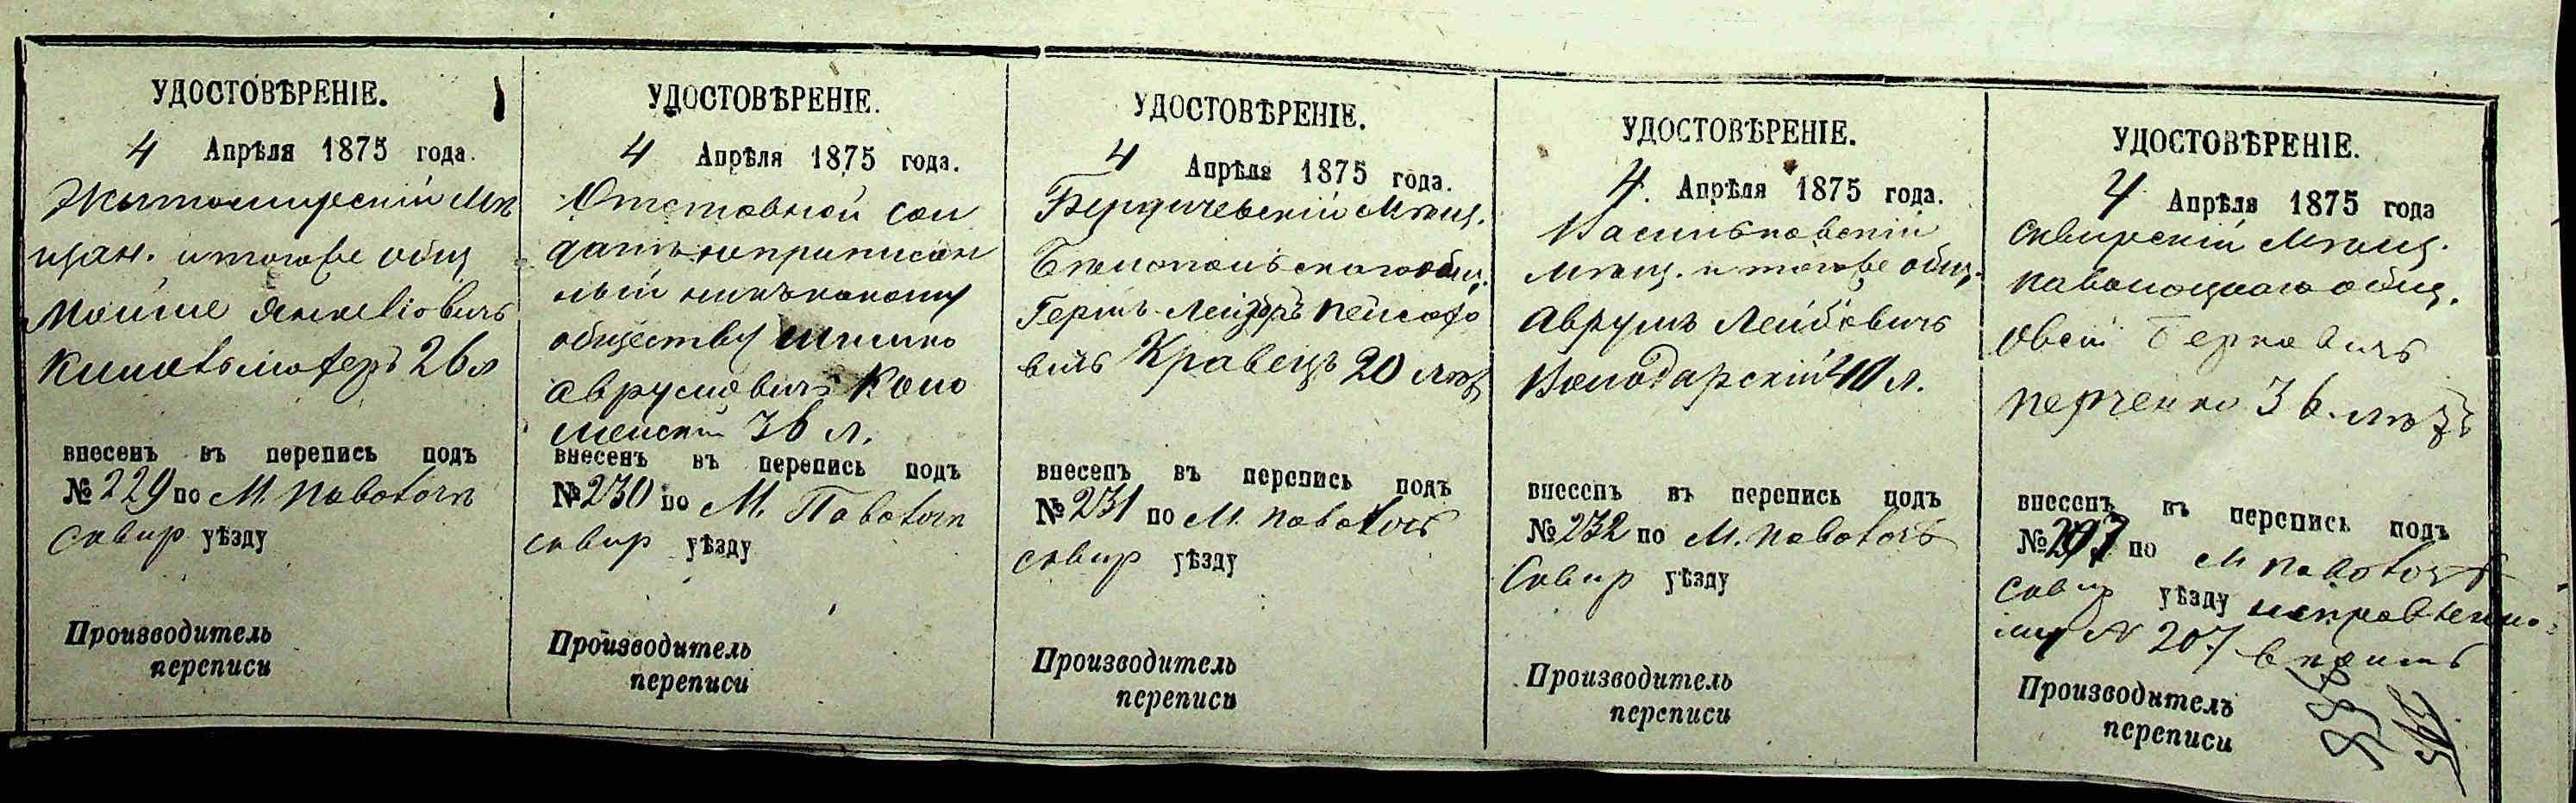 УДОСТОВѢРЕНІЕ.
4 Апрѣля 1875 года.
Житомирскій Мѣ
щан. итогоже общ
Мойше Янкеліовичъ
26 л
внесенъ въ перепись подъ
№ 229 по М. Паволочѣ
Сквир уѣзду
Производитель
переписи
УДОСТОВѢРЕНІЕ.
4 Апрѣля 1875 года.
Отставной сол
датъ неприписан
ный никъкакому
обществу Шлиомо
Аврумовичъ Коло
менскій 36 л.
внесенъ въ перепись подъ
№ 230 по М. Паволочѣ
сквир уѣзду
Производитель
переписи
УДОСТОВѢРЕНІЕ.
4 Апрѣля 1875 года.
Бердичевскій Мѣщ.
Бѣлопольскаго общ.
Гершъ-Лейзоръ Пейсахо
вичъ Кравецъ 20 лѣтъ
внесенъ въ перепись подъ
№ 231 по М. Паволочѣ
сквир уѣзду
Производитель
переписи
УДОСТОВѢРЕНІЕ.
4. Апрѣля 1875 года.
Васильковскій
мѣщ. и тогоже общ.
Аврумъ Лейбовичъ
Володарскій 40 л.
внесенъ въ перепись подъ
№ 232 по М. Паволочѣ
Сквир уѣзду
Производитель
переписи
УДОСТОВѢРЕНІЕ.
4 Апрѣля 1875 года
Сквирскій Мѣщ.
Паволоцкаго общ.
Овсій Берковичъ
Перченко 36. лѣтъ
внесенъ въ перепись подъ
№ 207 по М Паволочѣ
Сквир уѣзду исправленно-
му N 207 вѣрить
Производитель
переписи